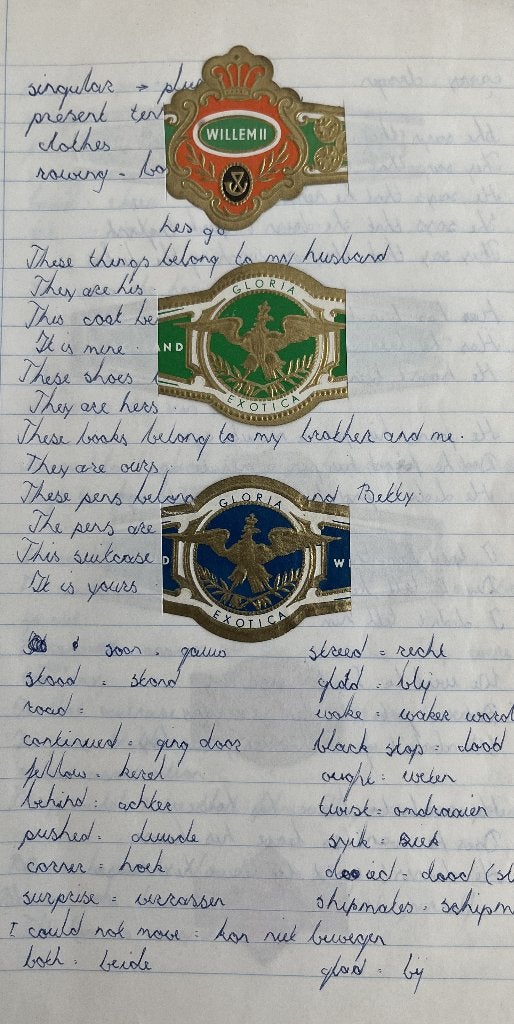 singular → plu
present ten
WILLEM II
clothes
rowing - bo
hes go
These things belong to my husband
They are his
GLORIA
This coat be
It is mine.
ND
These shoes
EXOTICA
They are hers.
These books belong to my brother and me.
They are ours.
GLORIA
These pens belon nd Bekky
The pens are
This suitcase
D WI
It is yours
EXOTICA
soon = gauw
stood = stond
road =
continued = ging door
fellow = kerel
behind = achter
pushed = duwde
corner = hoek
surprise = verrassen
I could not move = kon niet bewegen
both = beide
streed = recht
glad = blij
woke = waker word
black stop = dood
ought = weten
twist = omdraaien
syik = ziek
died = dood (st
shipmates = schipm
glad = bij